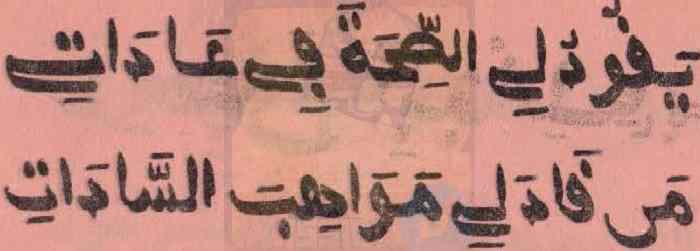 يَقُودُ لِي الصِّحَّةَ فِي عَادَاتِي
مَن قَادَ لِي مَوَاهِبَ السَّادَاتِ